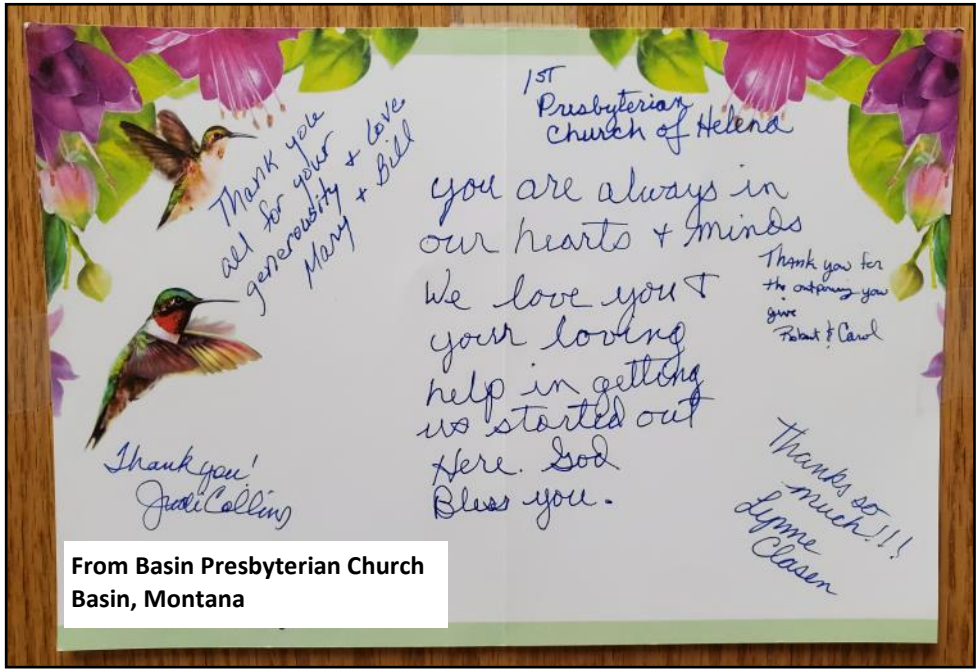 Thank you
all for your
generousity + Love
Mary + Bill
1ST
Presbyterian
Church of Helena
you are always in
our hearts + minds
We love you +
your loving
help in getting
us started out
Here. God
Bless you.
Thank you for
the outpouring you
give
Robert & Carol
Thank you!
Judi Collins
Thanks so
much!!!
Lynne
Clasen
From Basin Presbyterian Church
Basin, Montana